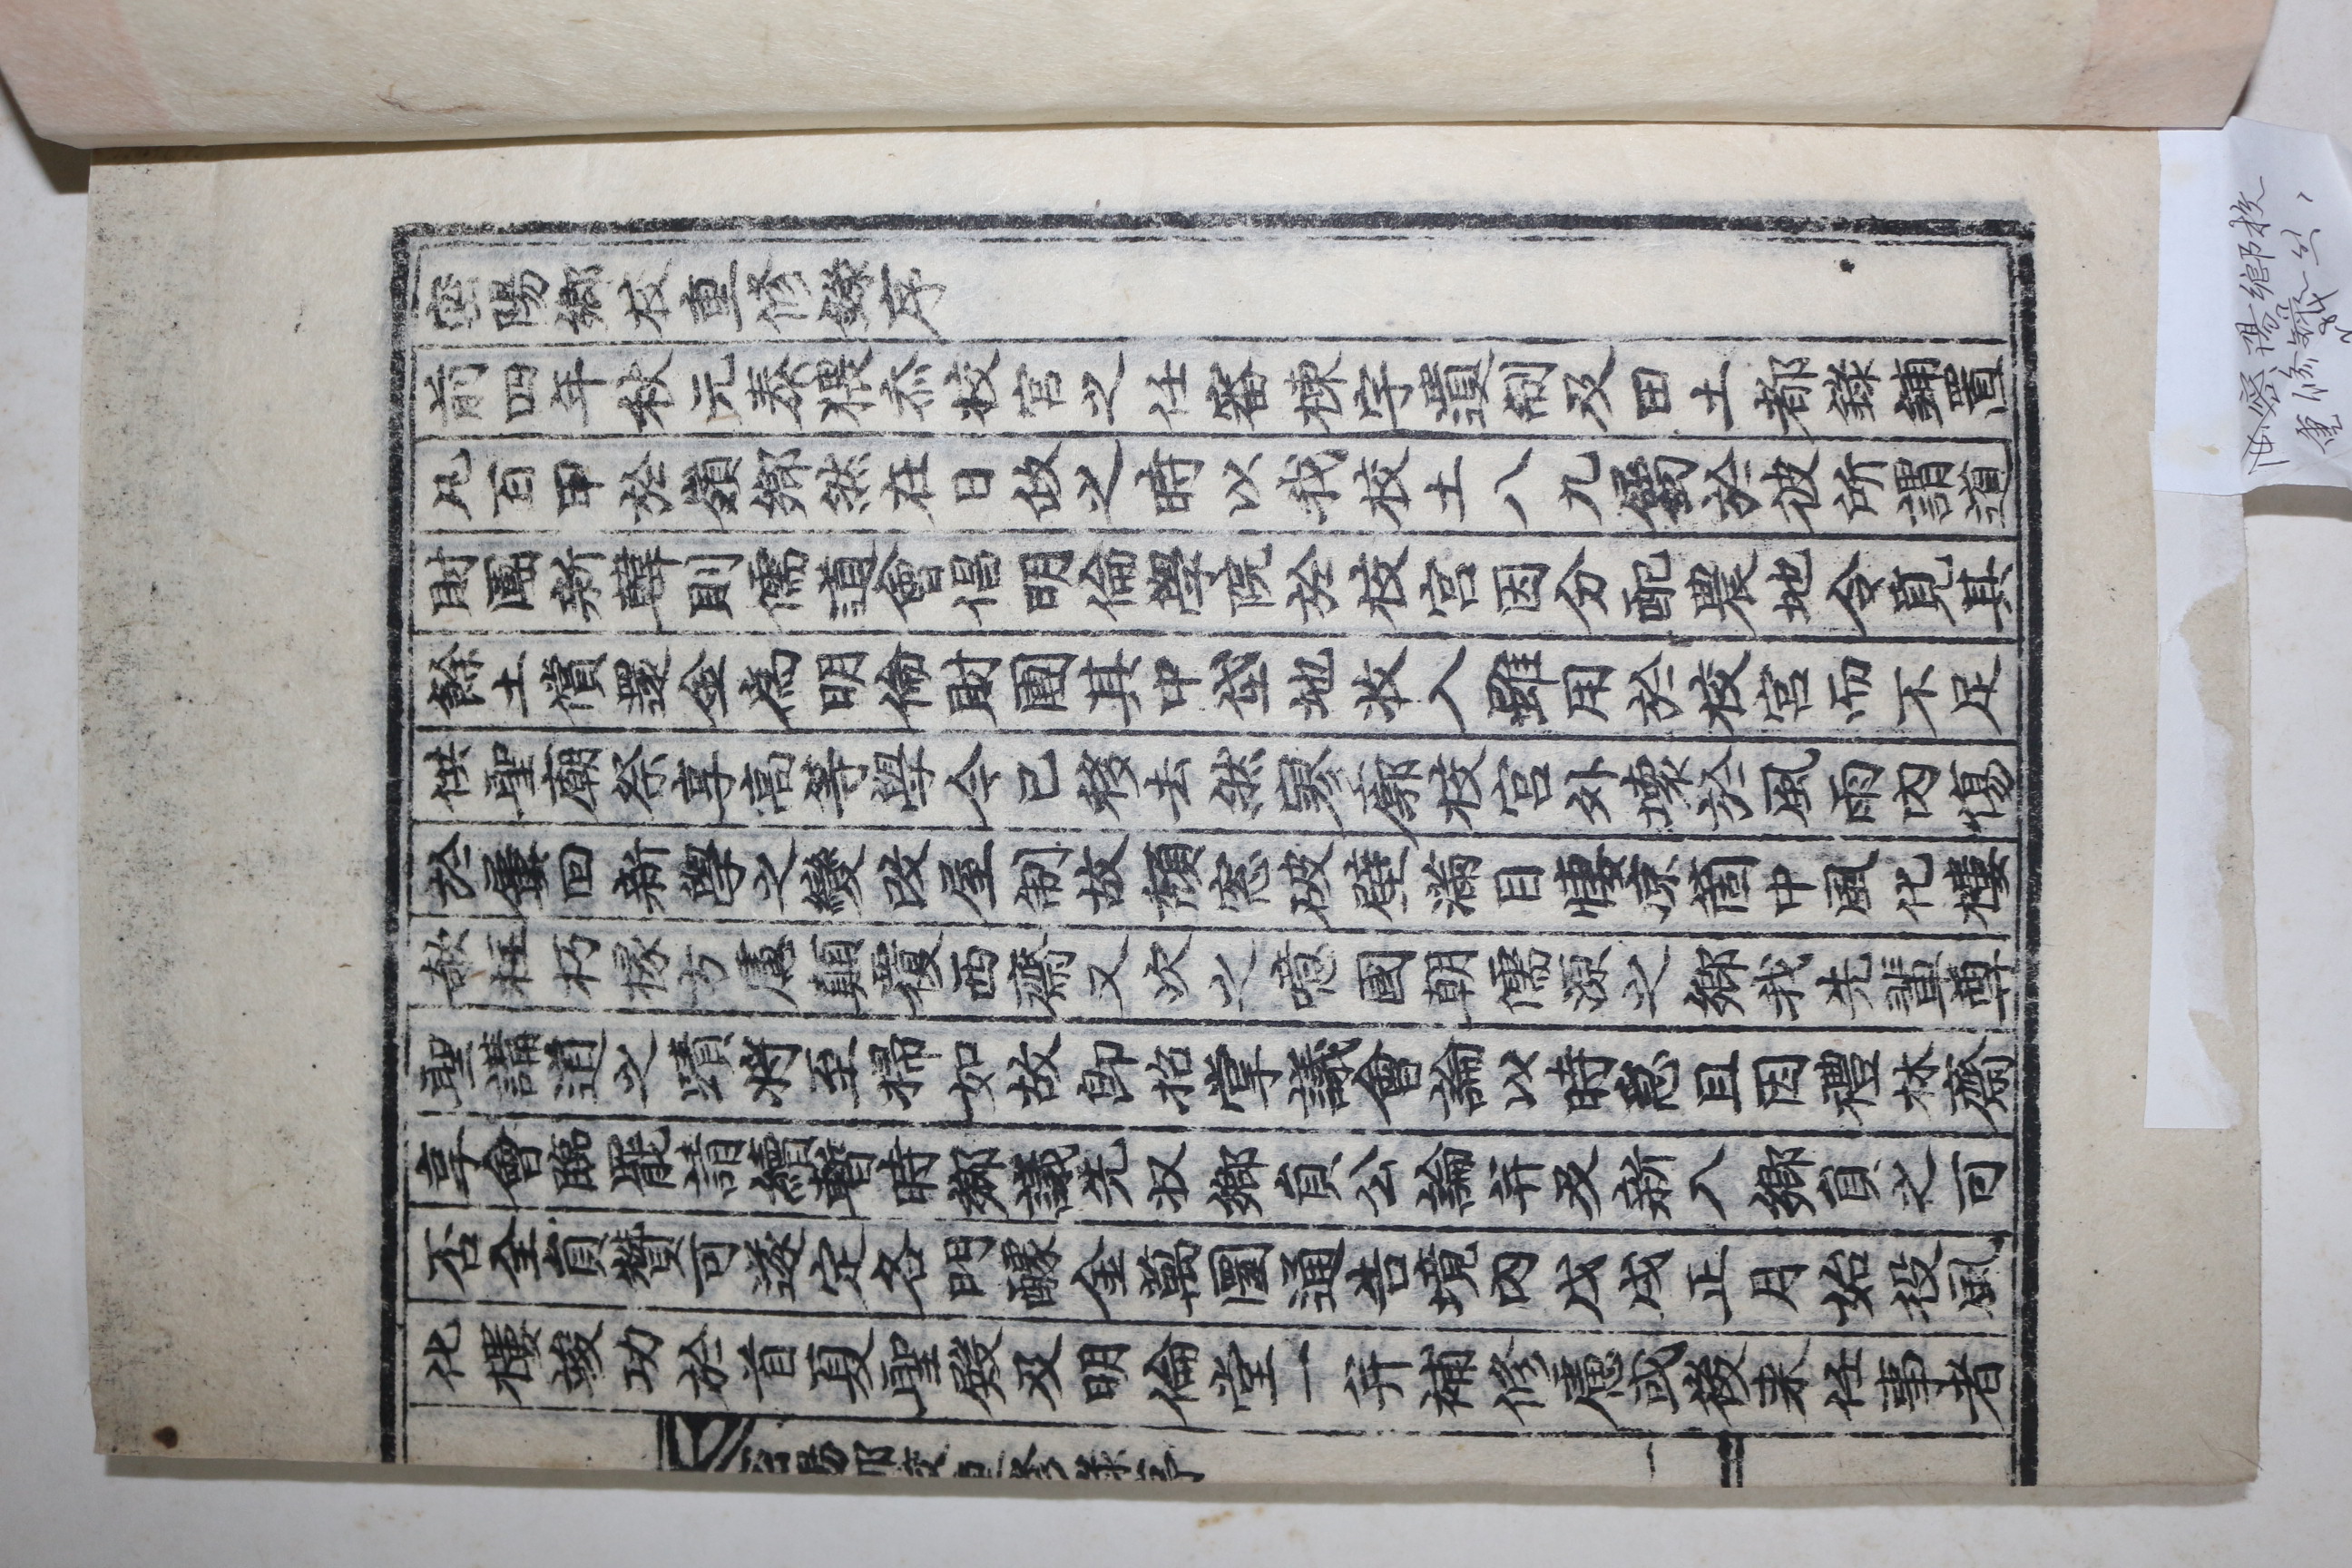 密陽鄉校重修錄序
前四年秋元泰猥忝校宮之任審棟宇遺制及田土都錄鋪置
凡百甲於嶺鄉然在日政之時以我校土八九屬於彼所謂道
財團新韓則儒道會倡明倫學院於校宮因分配農地令覓其
餘土償還金爲明倫財團其中垈地收入雖用於校宮而不足
供聖廟祭享高等學令已移去然寥廓校宮外壞於風雨內傷
於屢回新學之變改屋制故頹窓破壁滿目悽凉箇中風化樓
欹柱朽椽方慮顚覆西齋又次之噫國朝儒源之鄉我先輩尊
聖講道之蹟將至掃如故卽招掌議會論以時急且因禮林齋
享會臨罷請續暫時鄉議先収鄉員公論幷及新入鄉員之可
否全員贊可遂定各門醵金萬圜通告境內戊戌正月始役風
化樓竣功於首夏聖殿及明倫堂一幷補修慮或後来任事者
密陽鄉校重修錄序
一
密陽鄉校
重修錄
284